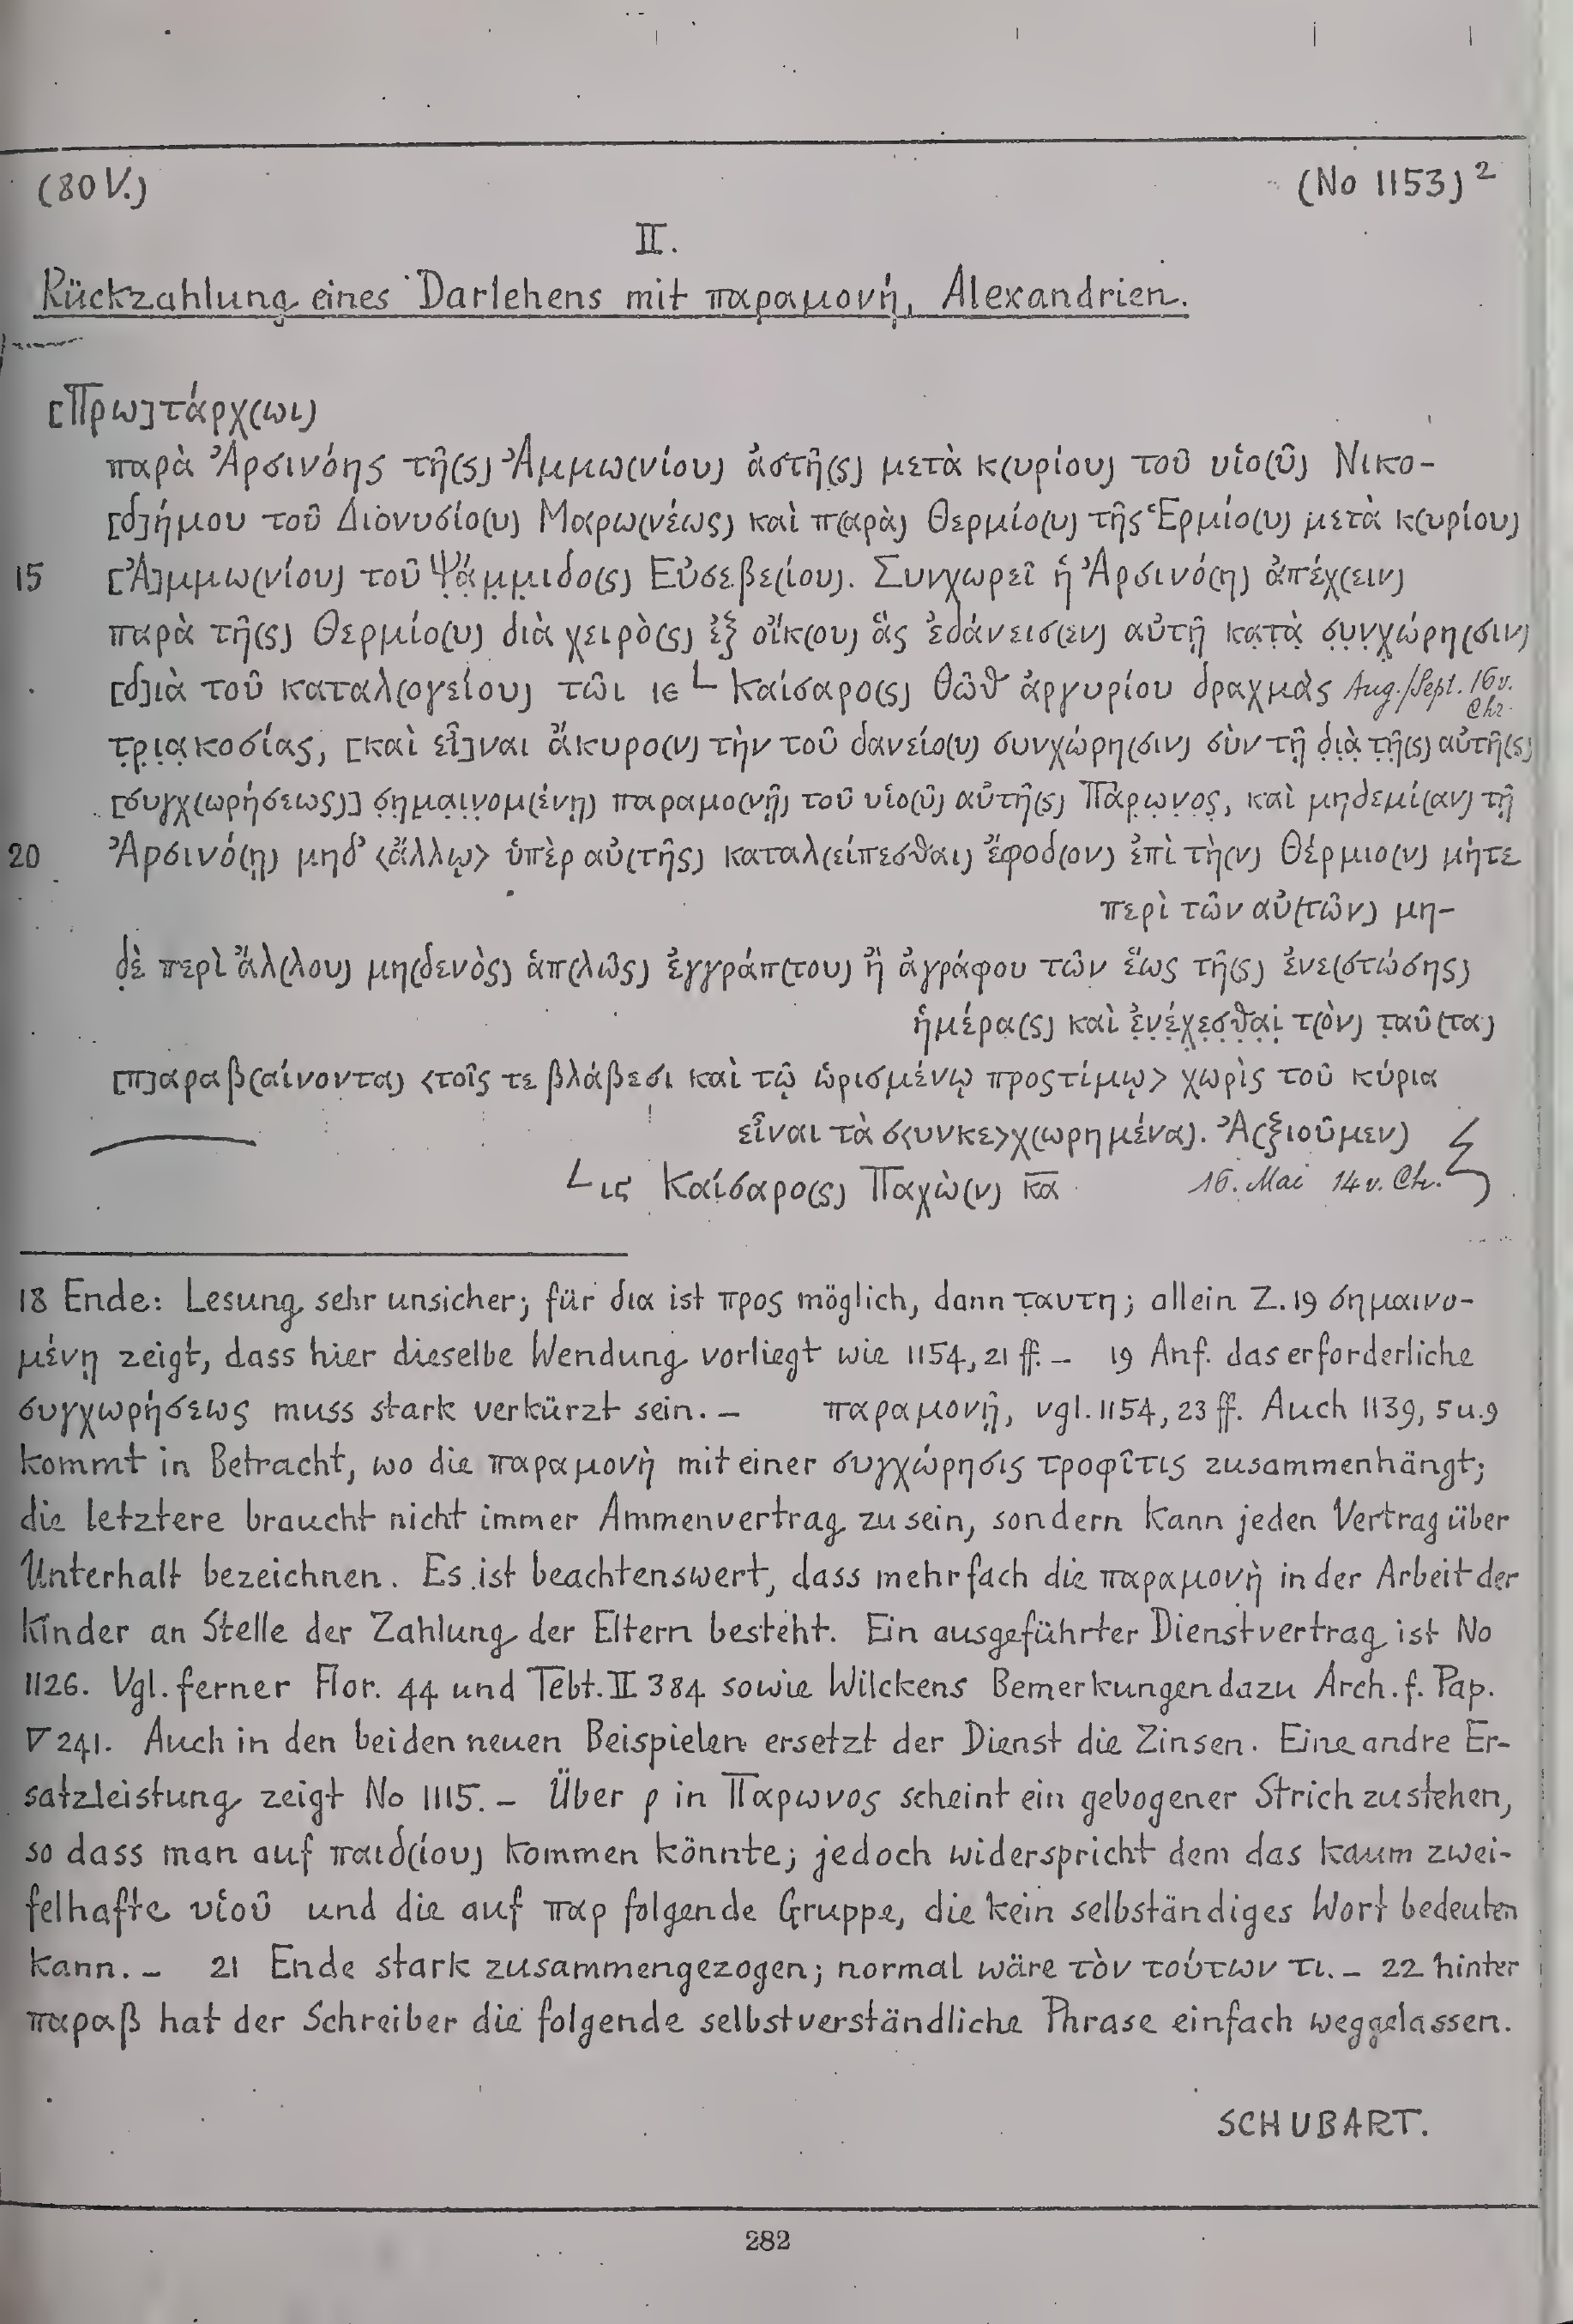 (80 V.) (No 1153)²
II.
Rückzahlung eines Darlehens mit παραμονή, Alexandrien.
[Πρω]τάρχ(ωι)
παρὰ Ἀρσινόης τῆ(ς) Ἀμμω(νίου) ἀστῆ(ς) μετὰ κ(υρίου) τοῦ υἱο(ῦ) Νικο-
[δ]ήμου τοῦ Διονυσίο(υ) Μαρω(νέως) καὶ π(αρὰ) Θερμίο(υ) τῆς Ἑρμίο(υ) μετὰ κ(υρίου)
15 [Ἀ]μμω(νίου) τοῦ Ψ̣ά̣μ̣μ̣ιδο(ς) Εὐσεβε(ίου). Συνχωρεῖ ἡ Ἀρσινό(η) ἀπέχ(ειν)
παρὰ τῆ(ς) Θερμίο(υ) διὰ χειρὸ(ς) ἐξ οἴκ(ου) ἃς ἐδάνεισ(εν) αὐτῇ κατ̣ὰ̣ σ̣υ̣ν̣χ̣ώρη(σιν)
[δ]ιὰ τοῦ καταλ(ογείου) τῶι ιε L Καίσαρο(ς) Θὼθ ἀργυρίου δραχμὰς Aug./Sept. 16 v. Chr.
τ̣ρ̣ι̣α̣κοσίας, [καὶ εἶ]ναι ἄκυρο(ν) τὴν τοῦ δανείο(υ) συνχώρη(σιν) σὺν τῇ δ̣ι̣ὰ̣ τ̣ῆ̣(ς) α̣ὐ̣τ̣ῆ̣(ς)
[συγχ(ωρήσεως)] σ̣η̣μ̣α̣ι̣ν̣ομ(ένῃ) παραμο(νῇ) τοῦ υἱο(ῦ) αὐτῆ(ς) Π̣ά̣ρ̣ω̣ν̣ο̣ς̣, καὶ μηδεμί(αν) τῇ
20 Ἀρσινό(ῃ) μηδ' <ἄλλῳ> ὑπὲρ αὐ(τῆς) καταλ(είπεσθαι) ἔφοδ(ον) ἐπὶ τὴ(ν) Θέρμιο(ν) μήτε
περὶ τῶν αὐ(τῶν) μη-
δ̣ὲ περὶ ἄλ(λου) μη(δενὸς) ἁπ(λῶς) ἐγγράπ(του) ἢ ἀγράφου τῶν ἕως τῆ(ς) ἐνε(στώσης)
ἡμέρα(ς) καὶ ἐ̣ν̣έ̣χ̣ε̣σ̣θ̣α̣ι̣ τ(ὸν) τ̣αῦ(τα)
[π]αραβ(αίνοντα) <τοῖς τε βλάβεσι καὶ τῷ ὡρισμένῳ προςτίμῳ> χωρὶς τοῦ κύρια
εἶναι τὰ σ<υνκε>χ(ωρημένα). Ἀ(ξιοῦμεν)
L ις Καίσαρο(ς) Παχὼ(ν) κ̅α̅ 16. Mai 14 v. Ch.
18 Ende: Lesung sehr unsicher; für δια ist προς möglich, dann τ̣αυτη; allein Z. 19 σημαινο-
μένη zeigt, dass hier dieselbe Wendung vorliegt wie 1154, 21 ff. – 19 Anf. das erforderliche
συγχωρήσεως muss stark verkürzt sein. – παραμονῇ, vgl. 1154, 23 ff. Auch 1139, 5 u. 9
kommt in Betracht, wo die παραμονὴ mit einer συγχώρησις τροφῖτις zusammenhängt;
die letztere braucht nicht immer Ammenvertrag zu sein, sondern kann jeden Vertrag über
Unterhalt bezeichnen. Es ist beachtenswert, dass mehrfach die παραμονὴ in der Arbeit der
Kinder an Stelle der Zahlung der Eltern besteht. Ein ausgeführter Dienstvertrag ist No
1126. Vgl. ferner Flor. 44 und Tebt. II 384 sowie Wilckens Bemerkungen dazu Arch. f. Pap.
V 241. Auch in den beiden neuen Beispielen ersetzt der Dienst die Zinsen. Eine andre Er-
satzleistung zeigt No 1115. – Über ρ in Παρωνος scheint ein gebogener Strich zu stehen,
so dass man auf παιδ(ίου) kommen könnte; jedoch widerspricht dem das kaum zwei-
felhafte υἱοῦ und die auf παρ folgende Gruppe, die kein selbständiges Wort bedeuten
kann. – 21 Ende stark zusammengezogen; normal wäre τὸν τούτων τι. – 22 hinter
παραβ hat der Schreiber die folgende selbstverständliche Phrase einfach weggelassen.
SCHUBART.
282